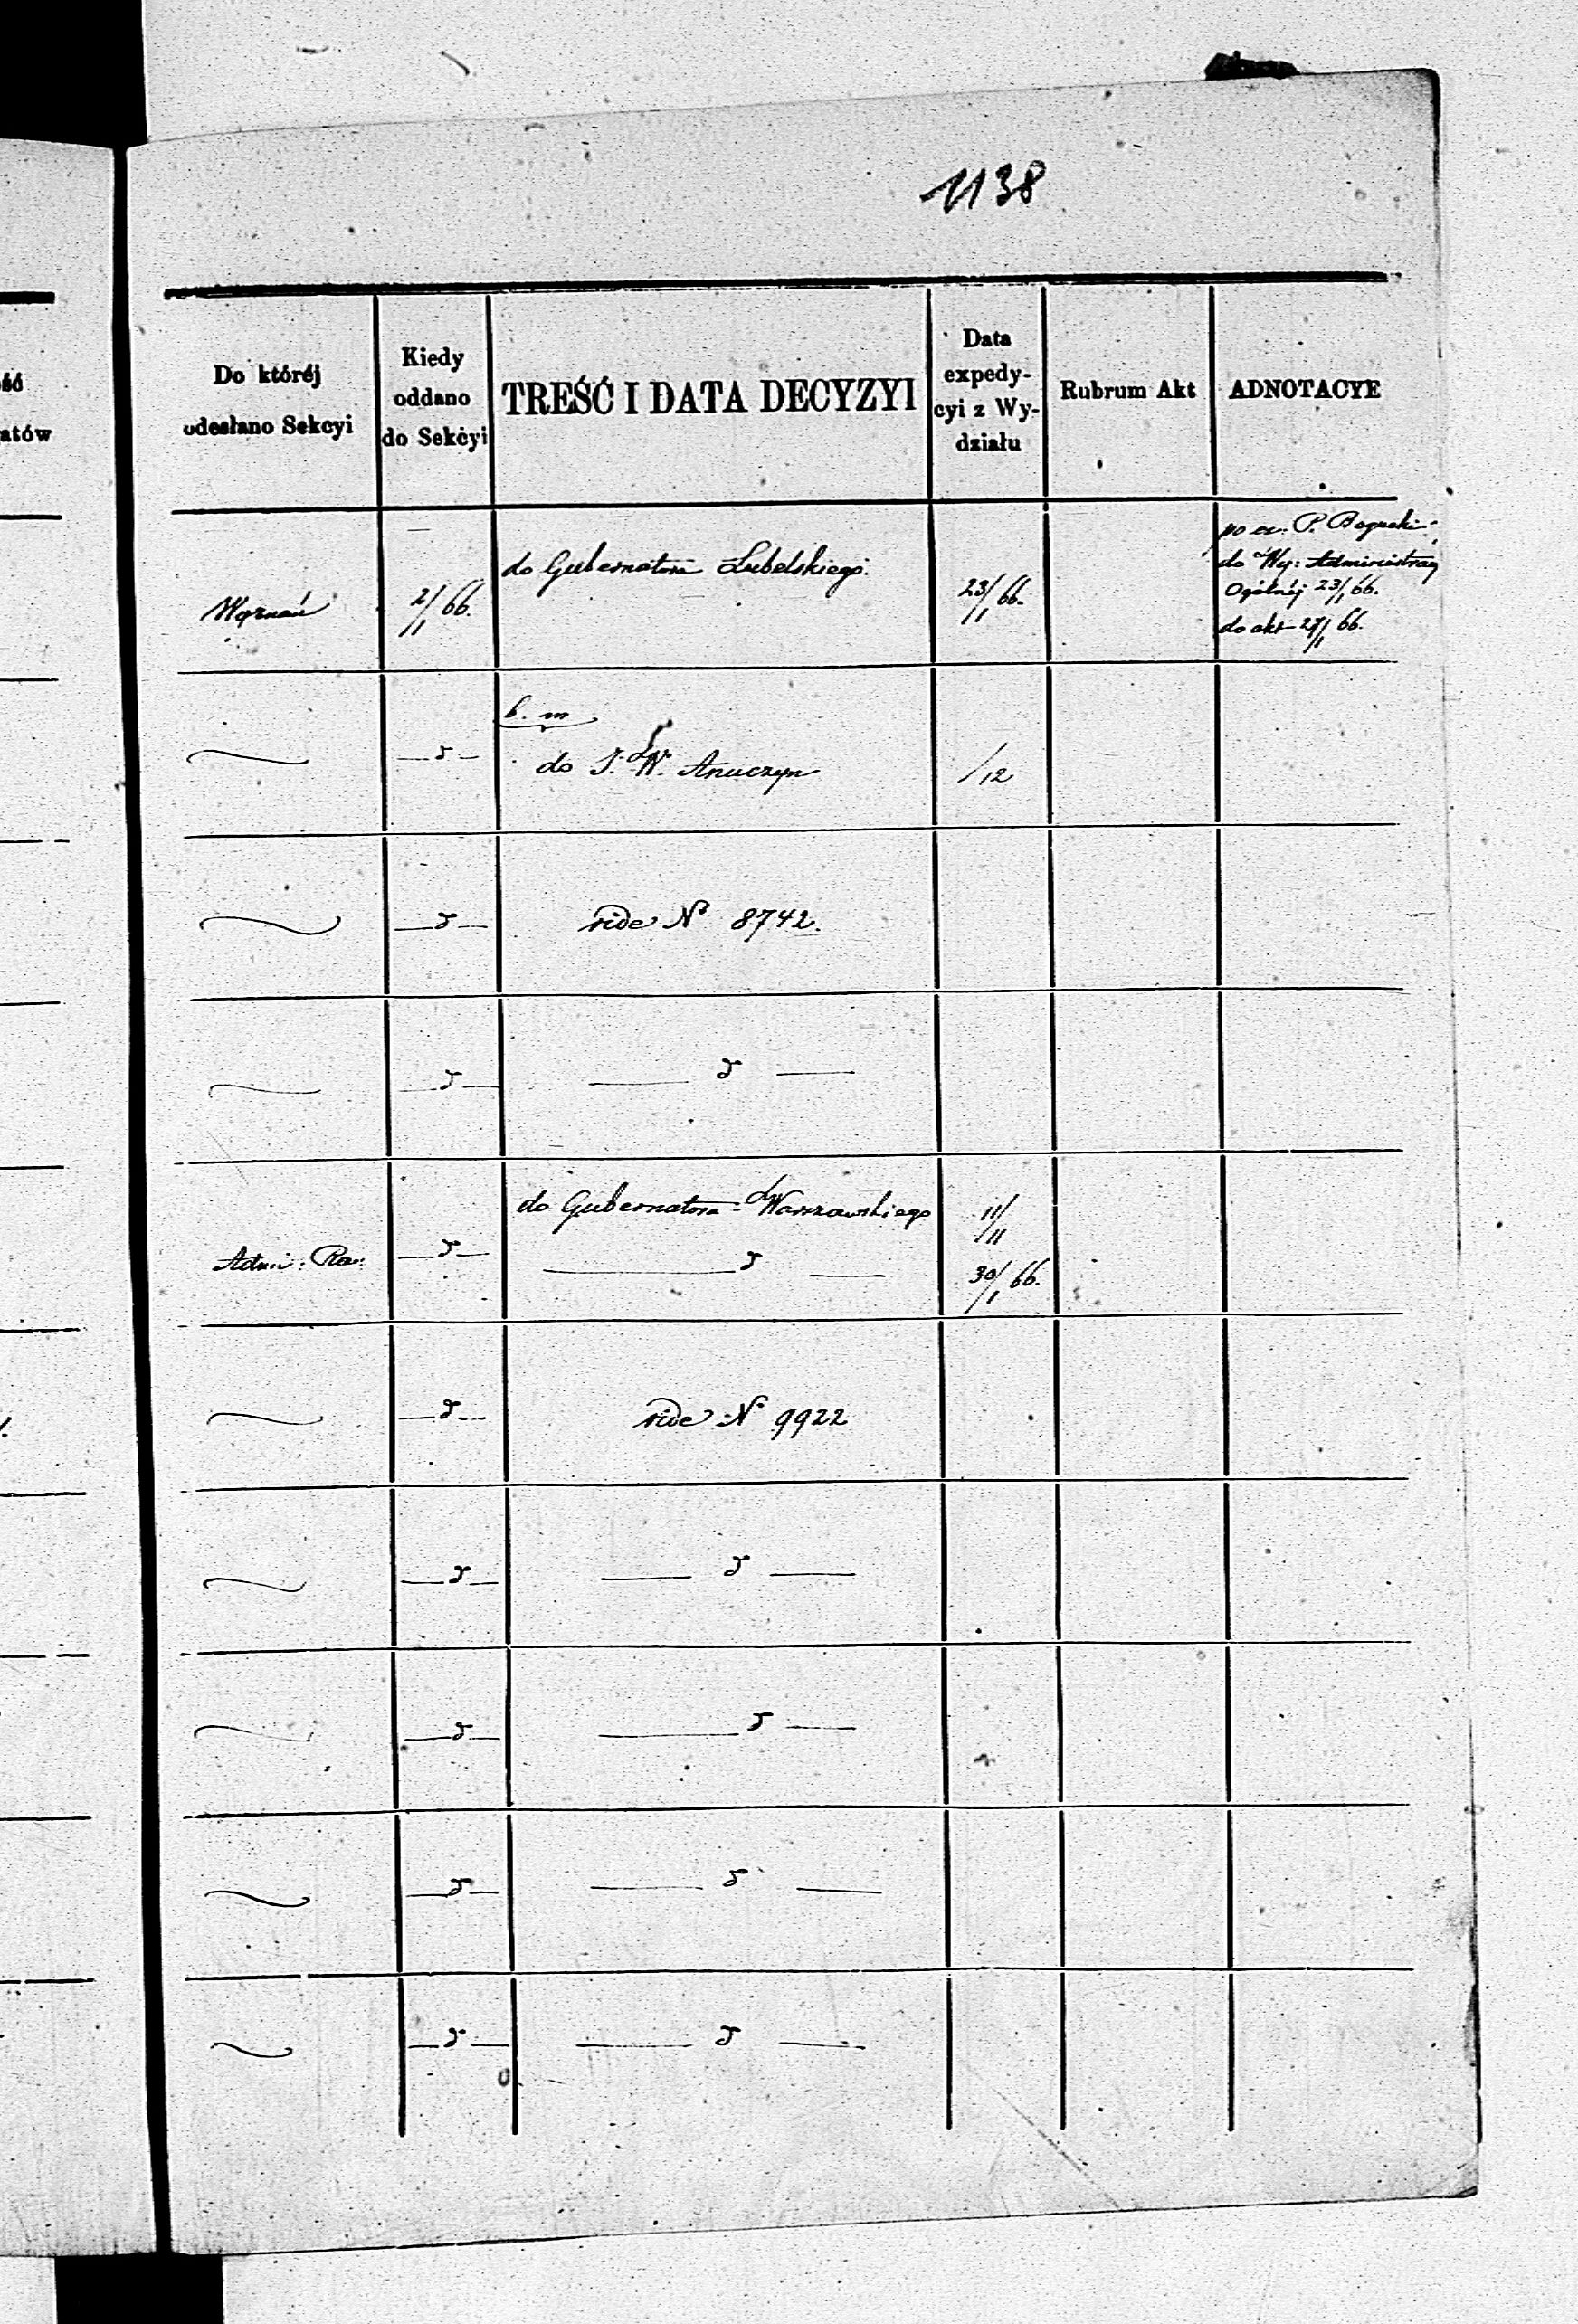 1138
ść
atów
Do któréj
odesłano Sekcyi
Kiedy
oddano
do Sekcyi
TREŚĆ I DATA DECYZYI
Data
expedy-
cyi z Wy-
działu
Rubrum Akt
ADNOTACYE
2/1 66.
do Gubernatora Lubelskiego.
23/1 66.
P. Bogucki
do Wy: Administracyi
Ogólnéj 23/1 66.
do akt 27/1 66.
b. m
do J. W. Anuczyn
/12
vide N° 8742.
Admi: Ra:
do Gubernatora Warszawskiego
11/11
30/1 66.
vide N° 9922